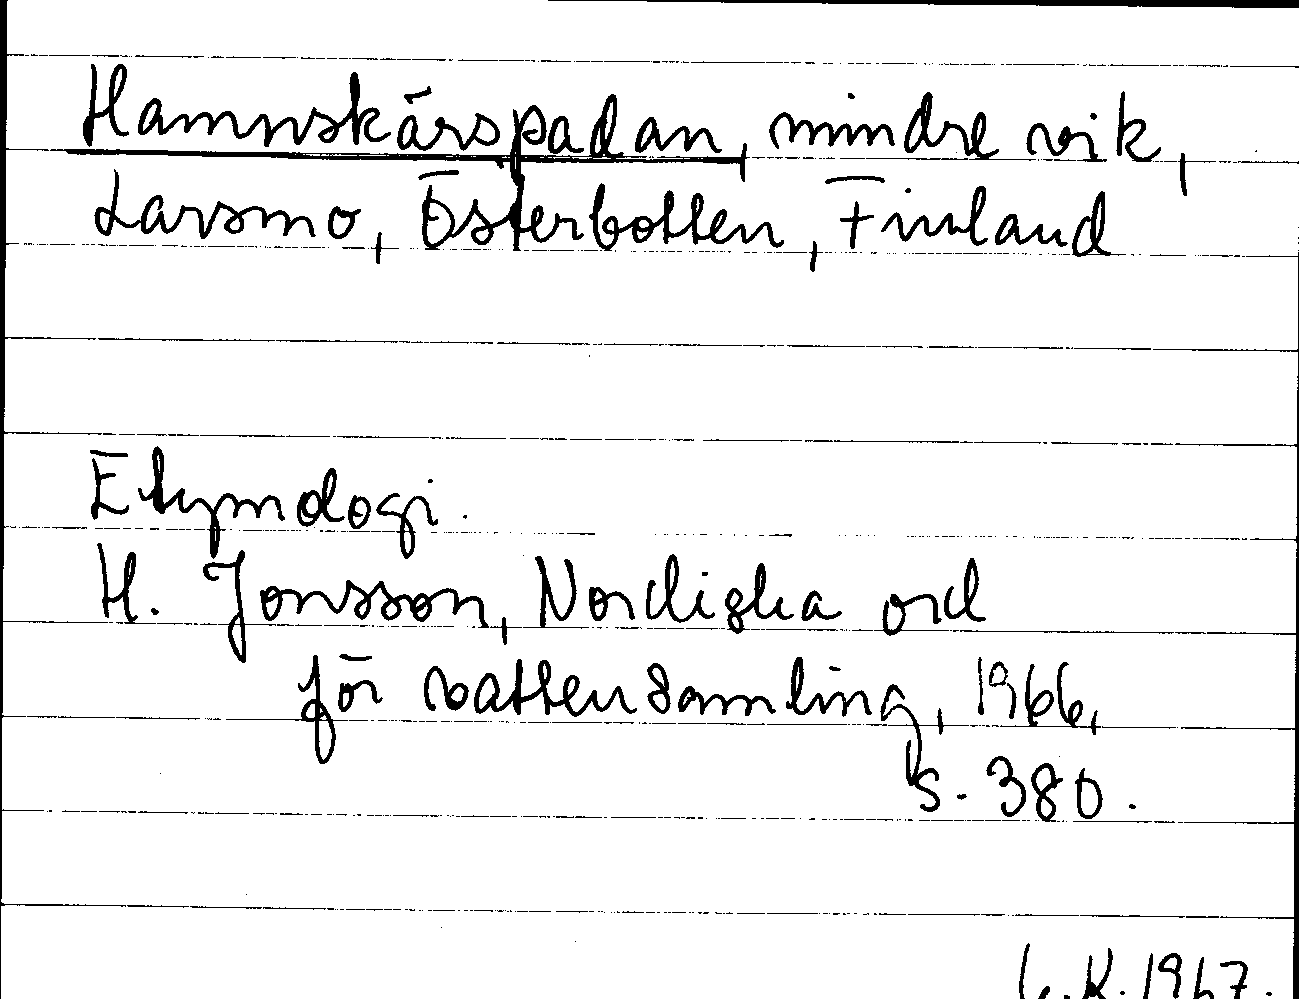 Hamnskärspadan, mindre vik,
Larsmo, Österbotten, Finland
Etymologi.
H. Jonsson, Nordiska ord
för vattensamling, 1966,
s. 380.
K. 1967.